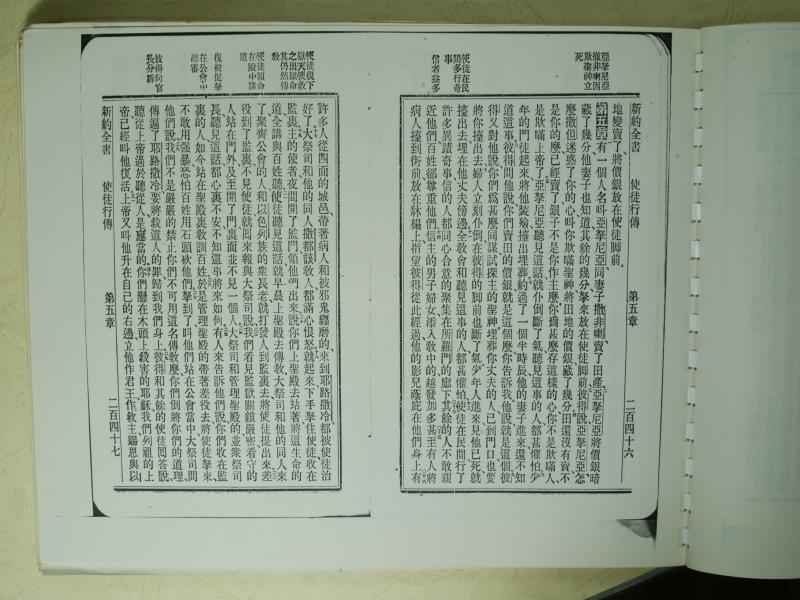 新約全書 使徒行傳 第五章 二百四十六
亞拏尼亞
撒非喇因
欺聖神立
死
使徒在民
間多行奇
事
信者益多
地變賣了將價銀放在使徒脚前
第五章有一個人名叫亞拏尼亞同妻子撒非喇賣了田產亞拏尼亞將價銀暗
藏了幾分他妻子也知道其餘的幾分拏來放在使徒脚前彼得說亞拏尼亞怎
麼撒但迷惑了你的心叫你欺瞞聖神將田地的價銀藏了幾分田還沒有賣不
是你的麼已經賣了銀子不是你作主麼你爲甚麼存這樣的心你不是欺瞞人
是欺瞞上帝了亞拏尼亞聽見這話就仆倒斷了氣聽見這事的人都甚懼怕少
年的門徒起來將他裝殮擡出埋葬約過了一個半時辰他的妻子進來還不知
道這事彼得問他說你們賣田的價銀就是這個麼你告訴我他說就是這個彼
得又對他說你們爲甚麼同謀試探主的聖神埋葬你丈夫的人已到門口也要
將你擡出去婦人立刻仆倒在彼得的脚前也斷了氣少年人進來見他已死就
擡出去埋在他丈夫傍邊全敎會和聽見這事的人都甚懼怕使徒在民間行了
許多異蹟奇事信的人都同心合意的聚集在所羅門的廊下其餘的人不敢親
近他們百姓卻尊重他們信主的男子婦女添入敎中的越發加多甚至有人將
病人擡到街前放在牀榻上指望彼得從此經過他的影兒蔭庇在他們身上有
使徒俱下
獄天使敎
之出獄命
其仍然傳
敎
使徒領命
在殿中講
道
復被捉拏
在公會中
聽審
彼得向官
長分訴
許多人從四面的城邑帶著病人和被邪鬼纏磨的來到耶路撒冷都被使徒治
好了大祭司和他的同人撒都該敎人都滿心恨怒就起來下手拏住使徒收在
監裏主的使者夜間開了監門領他們出來說你們上聖殿去站著將這生命的
道全講與百姓聽使徒聽見這話就早晨上聖殿去傳敎大祭司和他的同人來
了聚齊公會的人和以色列族的衆長老就打發人到監裏去將使徒提出來差
役到了監裏不見使徒就回來報與大祭司說我們看見監獄關鎖嚴密看守的
人站在門外及至開了門裏面並不見一個人大祭司和管理聖殿的並衆祭司
長聽見這話都心裏不安不知道這事將來如何有人來告訴他們說你們收在監
裏的人如今站在聖殿裏敎訓百姓於是管理聖殿的帶著差役去將使徒拏來
不敢用強暴恐怕百姓用石頭砍他們拏到了叫他們站在公會當中大祭司問
他們說我們不是嚴嚴的禁止你們不可用這名傳敎麼你們倒將你們的道理
傳遍了耶路撒冷要將殺這人的罪歸到我們身上彼得和其餘的使徒回答說
聽從上帝過於聽從人是應當的你們懸在木頭上殺害的耶穌我們列祖的上
帝已經叫他復活上帝又叫他升在自己的右邊立他作君王作救主賜恩與以
新約全書 使徒行傳 第五章 二百四十七